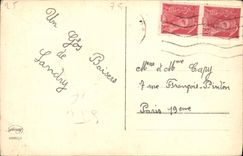 25
Un Gros
Baisers
de
Landry
Mme et Mme Capy
7 rue François-Pinton
Paris 19eme